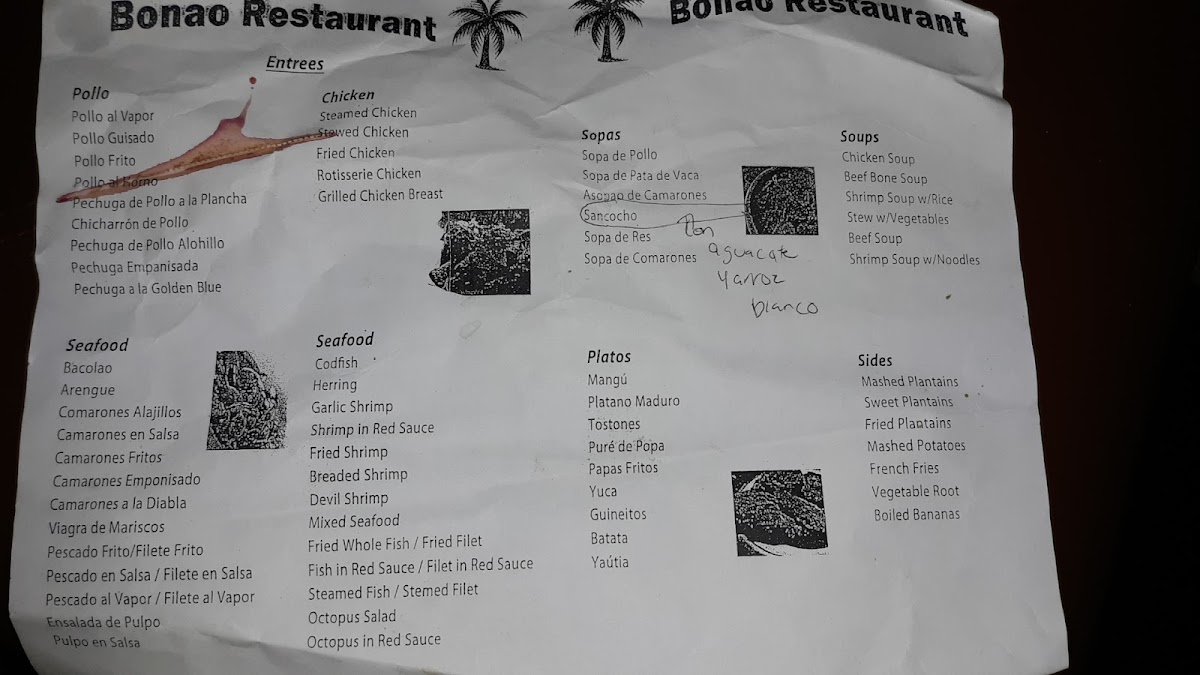 Bonao Restaurant
Bonao Restaurant
Entrees
Pollo
Pollo al Vapor
Pollo Guisado
Pollo Frito
Pollo al Horno
Pechuga de Pollo a la Plancha
Chicharrón de Pollo
Pechuga de Pollo Alohillo
Pechuga Empanisada
Pechuga a la Golden Blue
Chicken
Steamed Chicken
Stewed Chicken
Fried Chicken
Rotisserie Chicken
Grilled Chicken Breast
Seafood
Bacolao
Arengue
Comarones Alajillos
Camarones en Salsa
Camarones Fritos
Camarones Emponisado
Camarones a la Diabla
Viagra de Mariscos
Pescado Frito/Filete Frito
Pescado en Salsa / Filete en Salsa
Pescado al Vapor / Filete al Vapor
Ensalada de Pulpo
Pulpo en Salsa
Seafood
Codfish
Herring
Garlic Shrimp
Shrimp in Red Sauce
Fried Shrimp
Breaded Shrimp
Devil Shrimp
Mixed Seafood
Fried Whole Fish / Fried Filet
Fish in Red Sauce / Filet in Red Sauce
Steamed Fish / Stemed Filet
Octopus Salad
Octopus in Red Sauce
Sopas
Sopa de Pollo
Sopa de Pata de Vaca
Asopao de Camarones
Sancocho
Sopa de Res
Sopa de Comarones
aguacate
y arroz
blanco
Soups
Chicken Soup
Beef Bone Soup
Shrimp Soup w/Rice
Stew w/Vegetables
Beef Soup
Shrimp Soup w/Noodles
Platos
Mangú
Platano Maduro
Tostones
Puré de Popa
Papas Fritos
Yuca
Guineitos
Batata
Yaútia
Sides
Mashed Plantains
Sweet Plantains
Fried Plantains
Mashed Potatoes
French Fries
Vegetable Root
Boiled Bananas